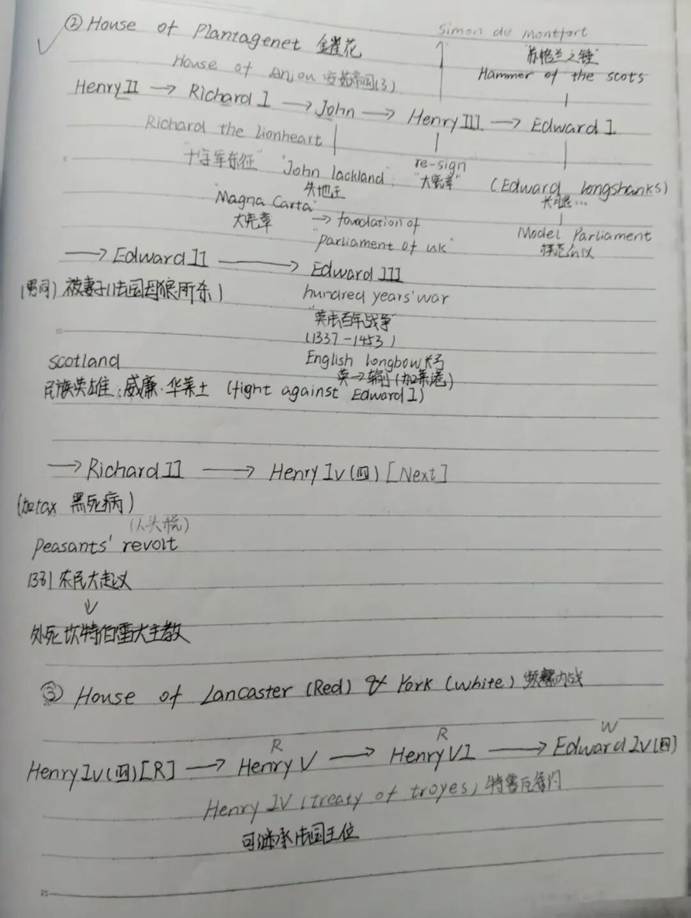 ② House of Plantagenet 金雀花
Simon de montfort
House of Anjou
"苏格兰之锤"
Hammer of the scots
Henry II → Richard I → John → Henry III → Edward I
Richard the Lionheart
"十字军东征" "John lackland" re-sign
失地王 "大宪章" (Edward longshanks)
"Magna Carta" → foundation of
大宪章 "parliament of uk" Model Parliament
→ Edward II → Edward III
(男同) 被妻子(法国母狼所杀) hundred years' war
"英法百年战争"
(1337-1453)
scotland English longbow 长弓
英→输 (加莱港)
民族英雄:威廉·华莱士 (fight against Edward I)
→ Richard II → Henry IV (四) [Next]
黑死病)
(人头税)
Peasants' revolt
1381 农民大起义
↓
处死坎特伯雷大主教
③ House of Lancaster (Red) & York (white) 内战
R R W
Henry IV (四) [R] → Henry V → Henry VI → Edward IV (四)
Henry IV (treaty of troyes)
可继承法国王位